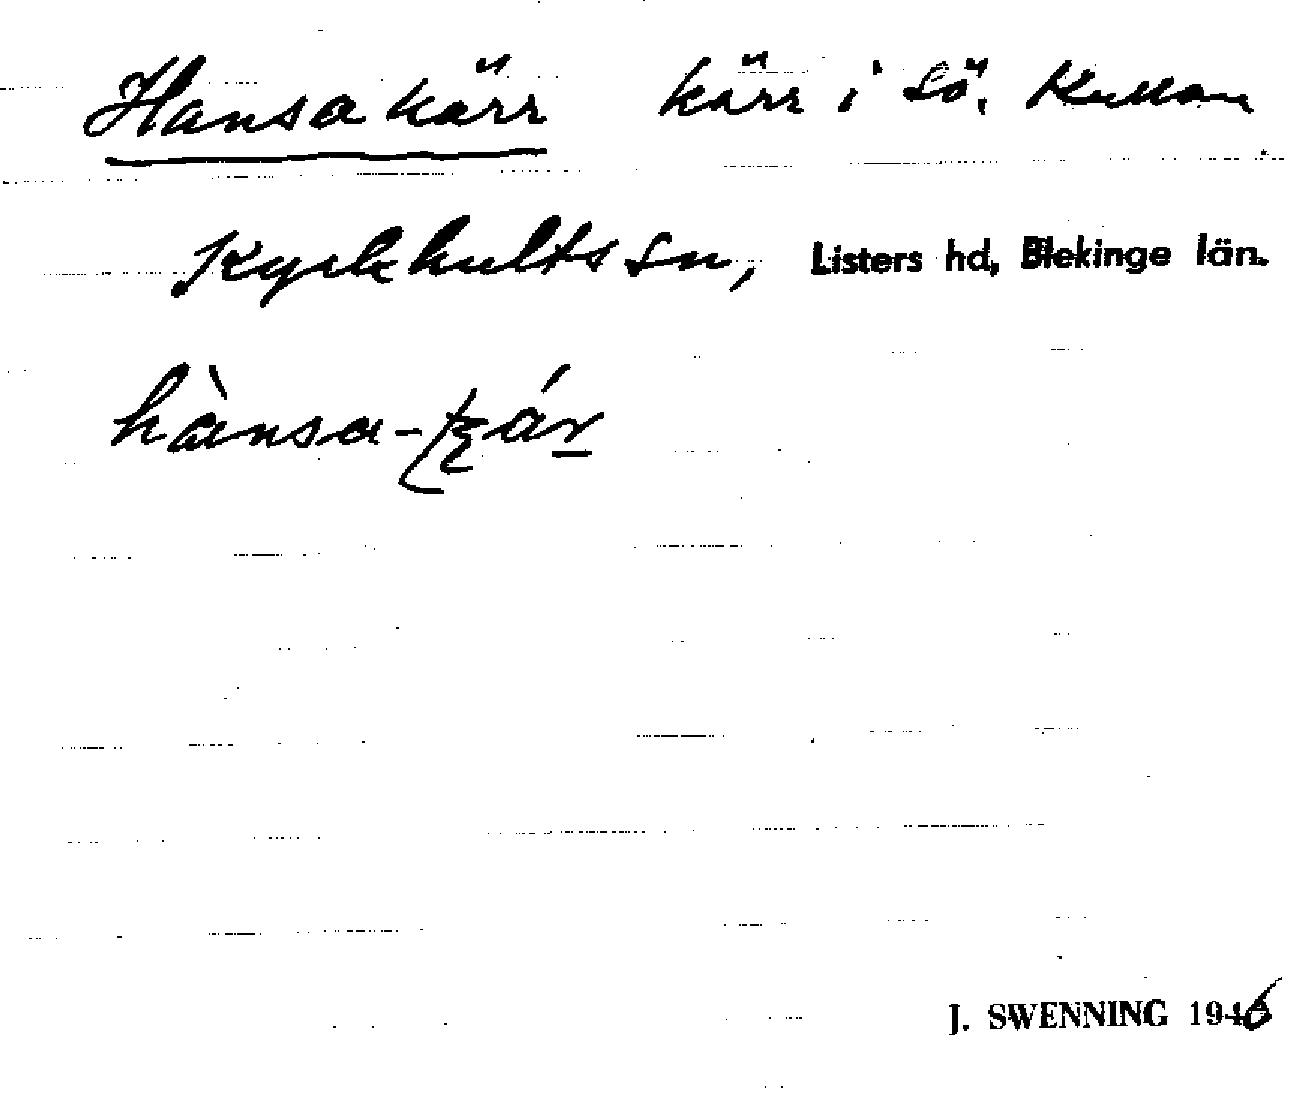 Hansakärr kärr i Sö. Kullan
Kyrkhults sn, Listers hd, Blekinge län.
hànsa-
J. SWENNING 1946